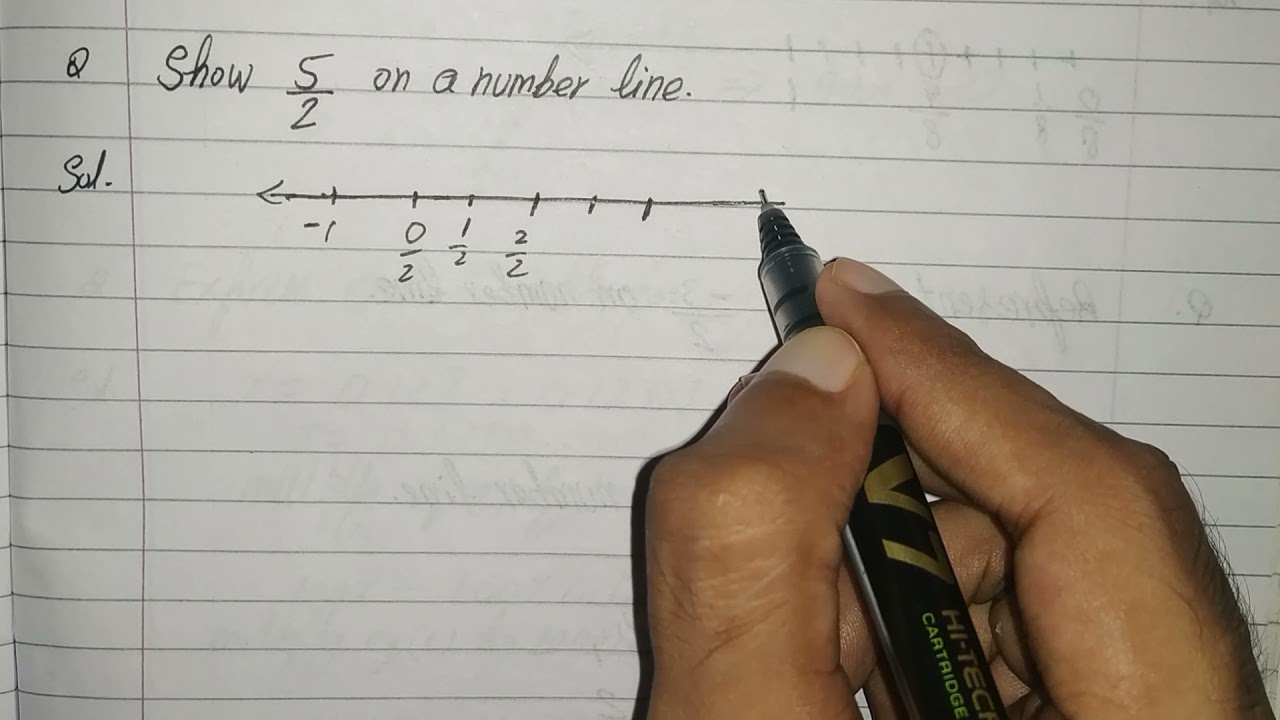 Q Show 5/2 on a number line.
Sol.
-1 0/2 1/2 2/2
V7
HI-TECP
CARTRIDGE